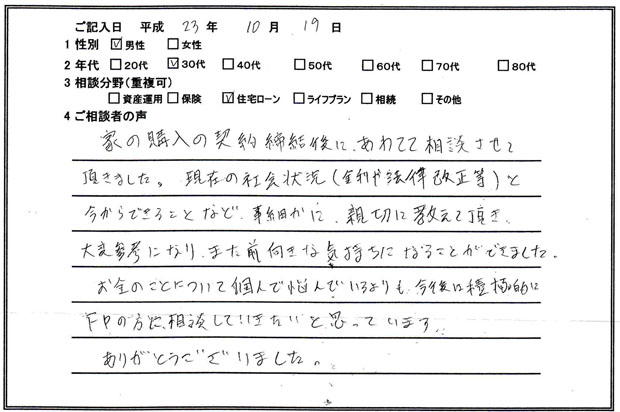 ご記入日 平成 23 年 10 月 19 日
1 性別 ☑男性 □女性
2 年代 □20代 ☑30代 □40代 □50代 □60代 □70代 □80代
3 相談分野(重複可)
□資産運用 □保険 ☑住宅ローン □ライフプラン □相続 □その他
4 ご相談者の声
家の購入の契約締結後に、あわてて相談させて
頂きました。現在の社会状況(金利や法律改正等)と
今からできることなど、事細かに、親切に教えて頂き、
大変参考になり、また前向きな気持ちになることができました。
お金のことについて個人で悩んでいるよりも、今後は積極的に
FPの方に相談していきたいと思っています。
ありがとうございました。